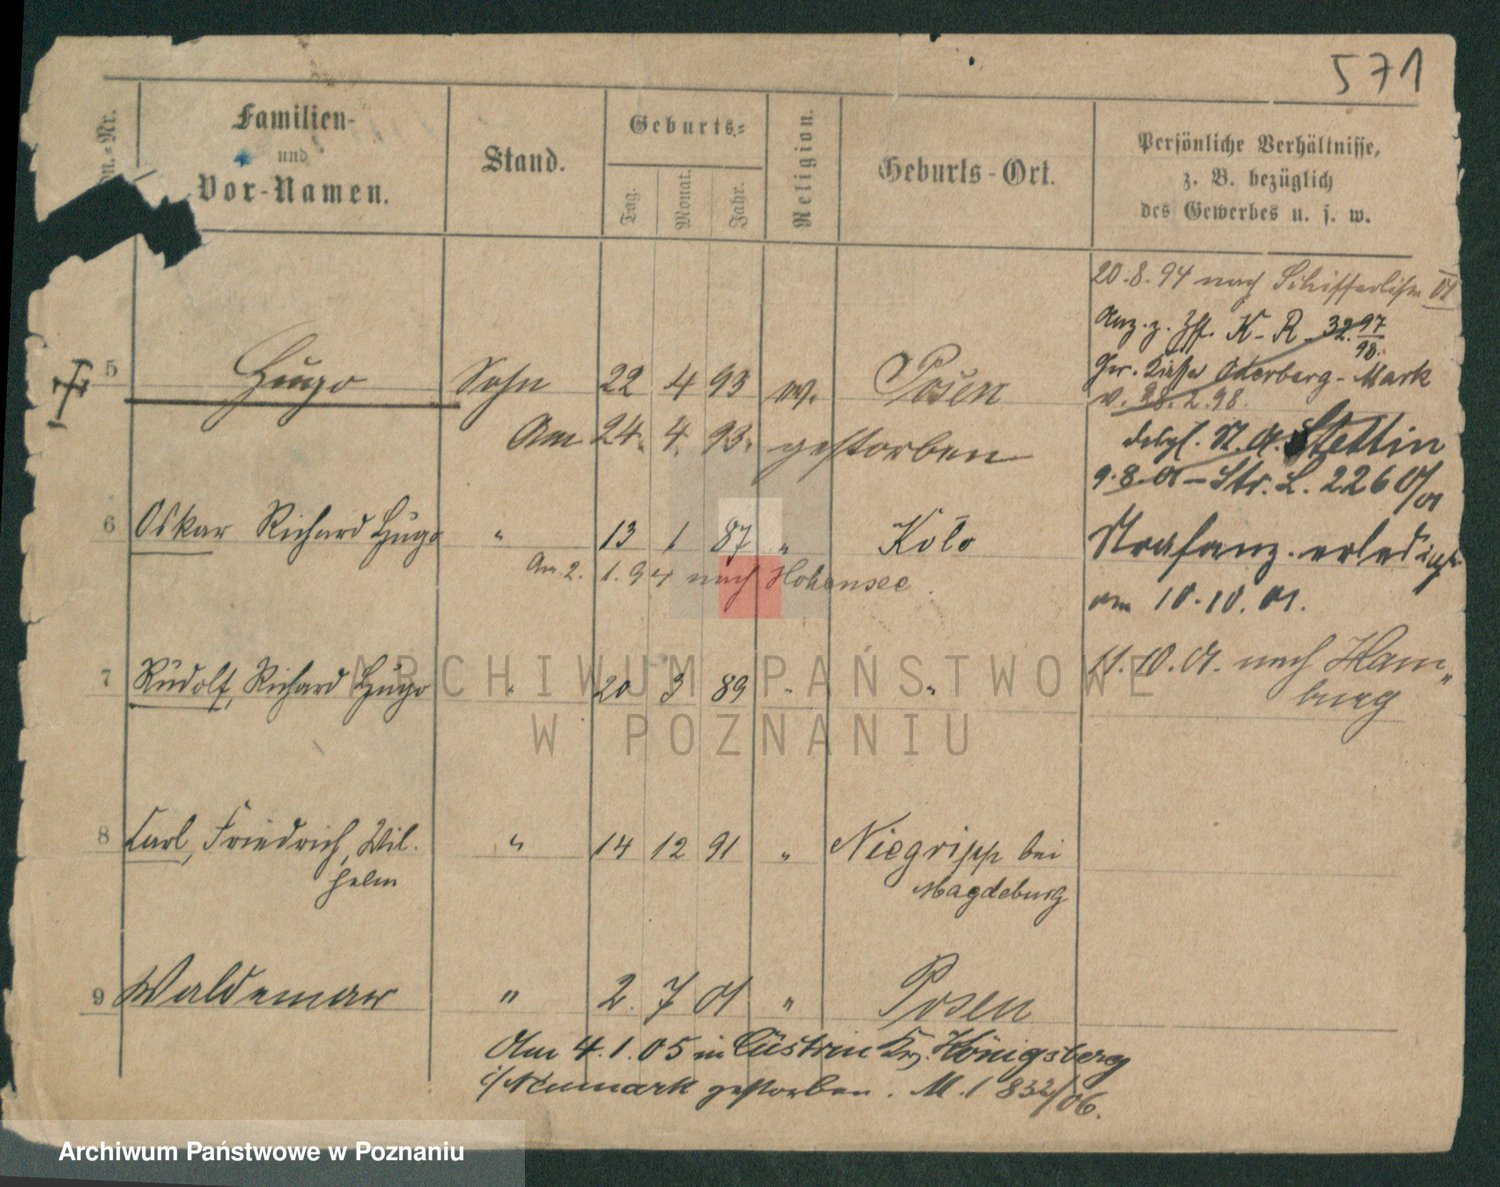 571
Familien-
und
Vor-Namen.
Stand.
Geburts-
Tag.
Monat.
Jahr.
Religion.
Geburts-Ort.
Persönliche Verhältnisse,
z. B. bezüglich
des Gewerbes u. s. w.
20.8.94 nach
K-R. 32.97
98.
Oderberg-Mark
v. 28.2.98.
desgl. St. A. Stettin
9.8.01 - Str. L. 2260/01
Strafanz. erledigt
am 10.10.01.
11.10.01. nach Ham-
burg
5 Hugo Sohn 22 4 93 Posen
Am 24. 4. 93. gestorben
6 Oskar Richard Hugo " 13 1 87 " Kolo
Am 2. 1. 94 nach Hohensee.
7 Rudolf, Richard Hugo " 20 3 89 " "
8 Carl, Friedrich, Wil-
helm " 14 12 91 " Niegripp bei
Magdeburg
9 Waldemar " 2. 7 01 " Posen
Am 4.1.05 in Cüstrin Kr. Königsberg
i/Neumark gestorben. M.1832/06.
ARCHIWUM PAŃSTWOWE
W POZNANIU
Archiwum Państwowe w Poznaniu